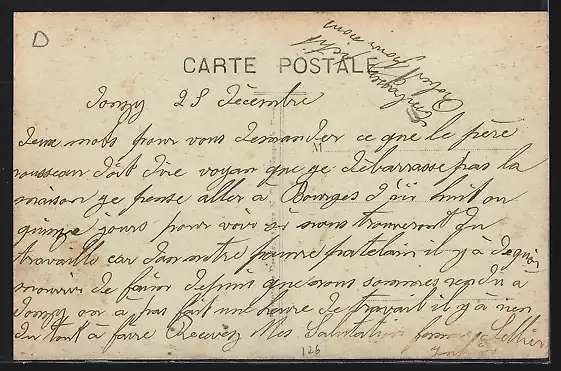 D
CARTE POSTALE
Donzy 28 Décembre
Deux mots pour vous demander ce que le père
rousseau doit dire voyan que ge débarrasse pas la
maison ge pense aller à Bourges d'ici huit ou
quinze jours pour voir si nous trouveront du
travaille car dans notre pauvre patelain il y à de quoi
mourrir de faim depuis que nous sommes rendu à
Donzy on à pas fait une heure de travail il y à rien
du tout à faire Recevez Mes Salutation Sellier
126